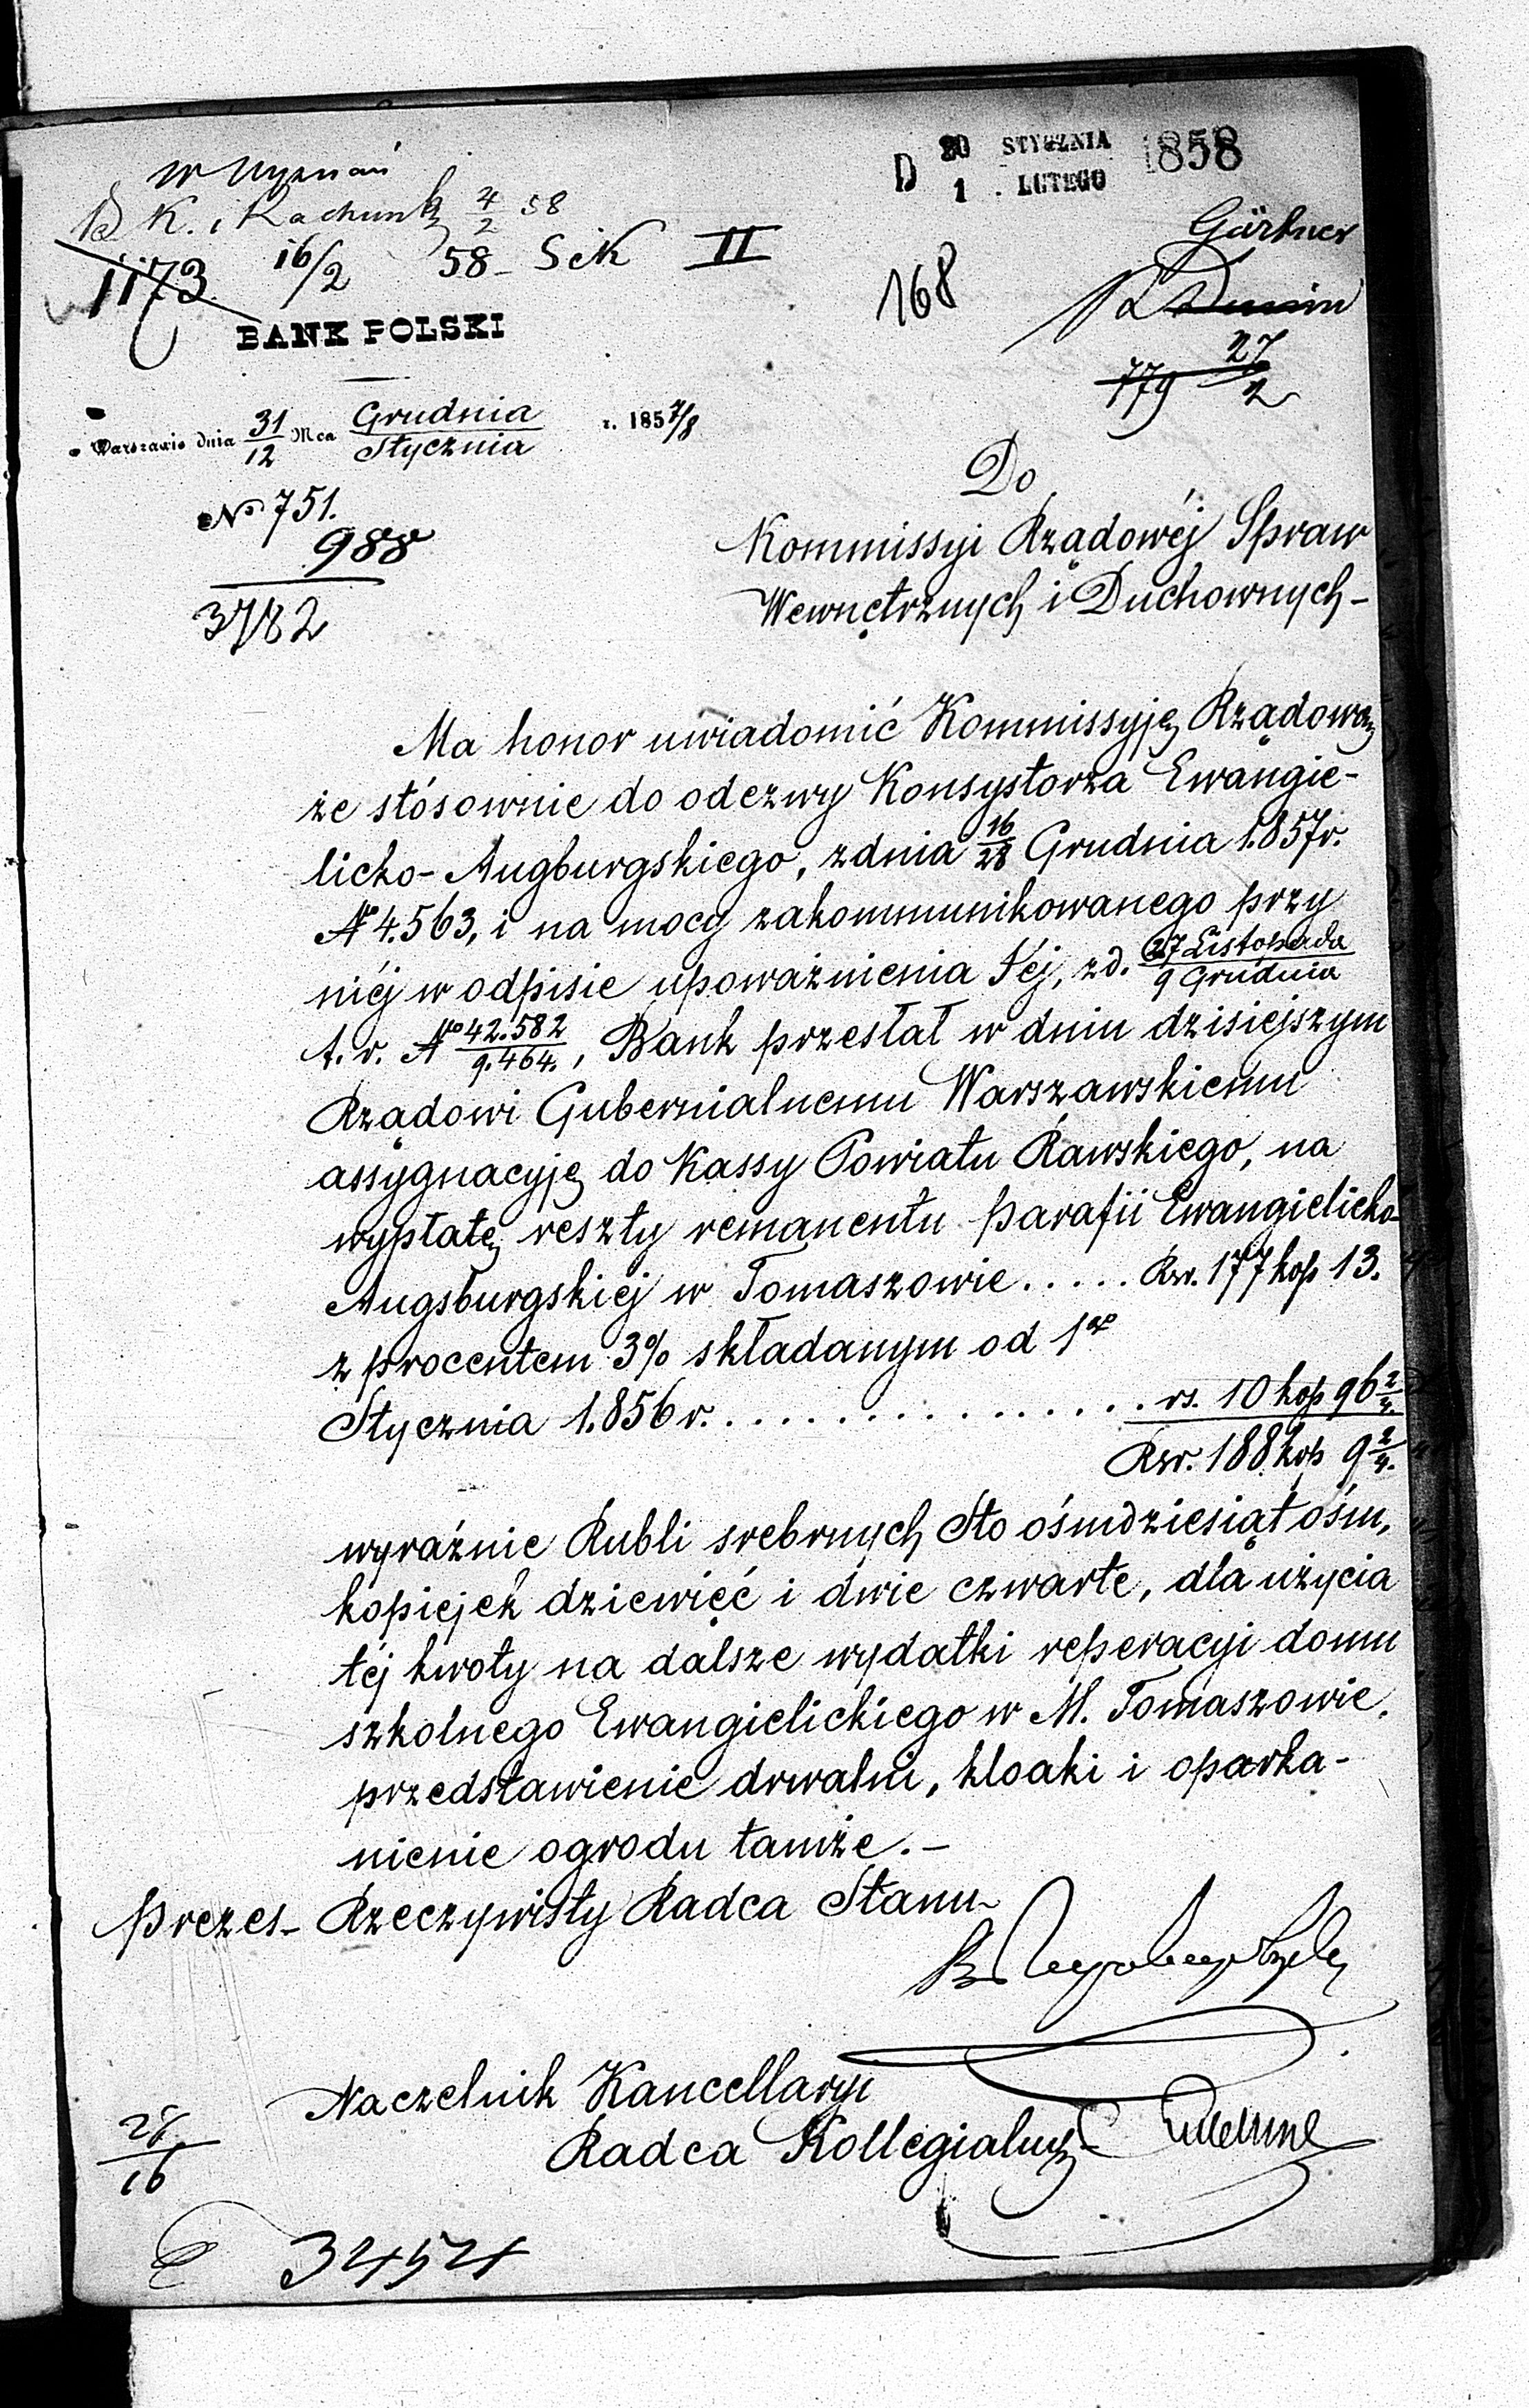 D 20 STYCZNIA 1858
1 LUTEGO
W Wyznań
K. i Rachunk 4/2 58
1173 16/2 58 - Sek II
168
Gärtner
779 27/2
BANK POLSKI
w Warszawie dnia 31/12 Mca Grudnia/Stycznia r. 1857/8
No 751.
988
3782
Do
Kommissyi Rządowéj Spraw
Wewnętrznych i Duchownych -
Ma honor uwiadomić Kommissyję Rządową
że stósownie do odezwy Konsystorza Ewangie-
licko - Augburgskiego, z dnia 16/28 Grudnia 1.857 r.
No 4.563, i na mocy zakommunikowanego przy
niéj w odpisie upoważnienia Jéj, z d. 27 Listopada/9 Grudnia
t. r. No 42.582/9.464., Bank przesłał w dniu dzisiejszym
Rządowi Gubernialnemu Warszawskiemu
assygnacyję do Kassy Powiatu Rawskiego, na
wypłatę reszty remanentu parafii Ewangielicko-
Augsburgskiej w Tomaszowie ..... Rsr. 177 kop 13.
z procentem 3% składanym od 1go
Stycznia 1.856 r. ................ rs. 10 kop 96 2/4.
Rsr. 188 kop 9 2/4.
wyraźnie Rubli srebrnych Sto ośmdziesiąt ośm,
kopiejek dziewięć i dwie czwarte, dla użycia
téj kwoty na dalsze wydatki reperacyi domu
szkolnego Ewangielickiego w M. Tomaszowie,
przedstawienie drwalni, kloaki i oparka-
nienie ogrodu tamże. -
Prezes - Rzeczywisty Radca Stanu
Naczelnik Kancellaryi
Radca Kollegialny
28/16
3454